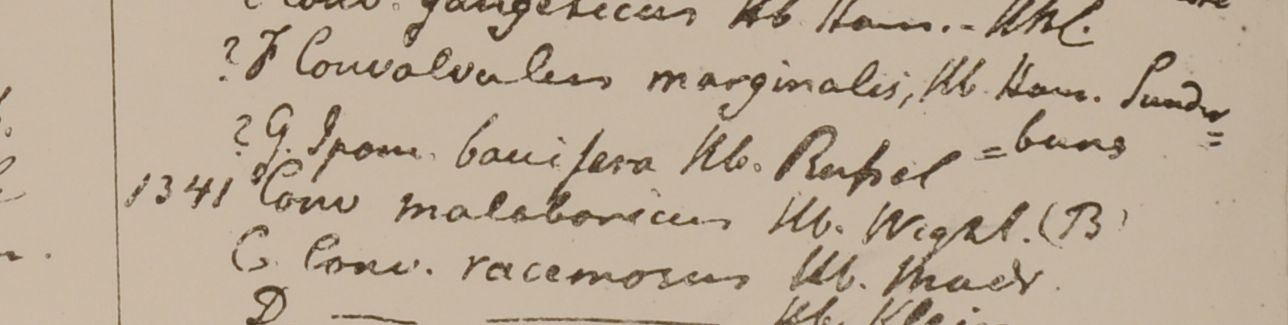 Conv. gangeticus Hb. Ham. - Hkl.
? F Convolvulus marginalis, Hb. Ham. Sunder
? G. Ipom. baccifera Hb. Russel =buns
1341 Conv malabaricus Hb. Wight. (B)
C. Conv. racemosus Hb. Madr.
D — — Hb. Klein